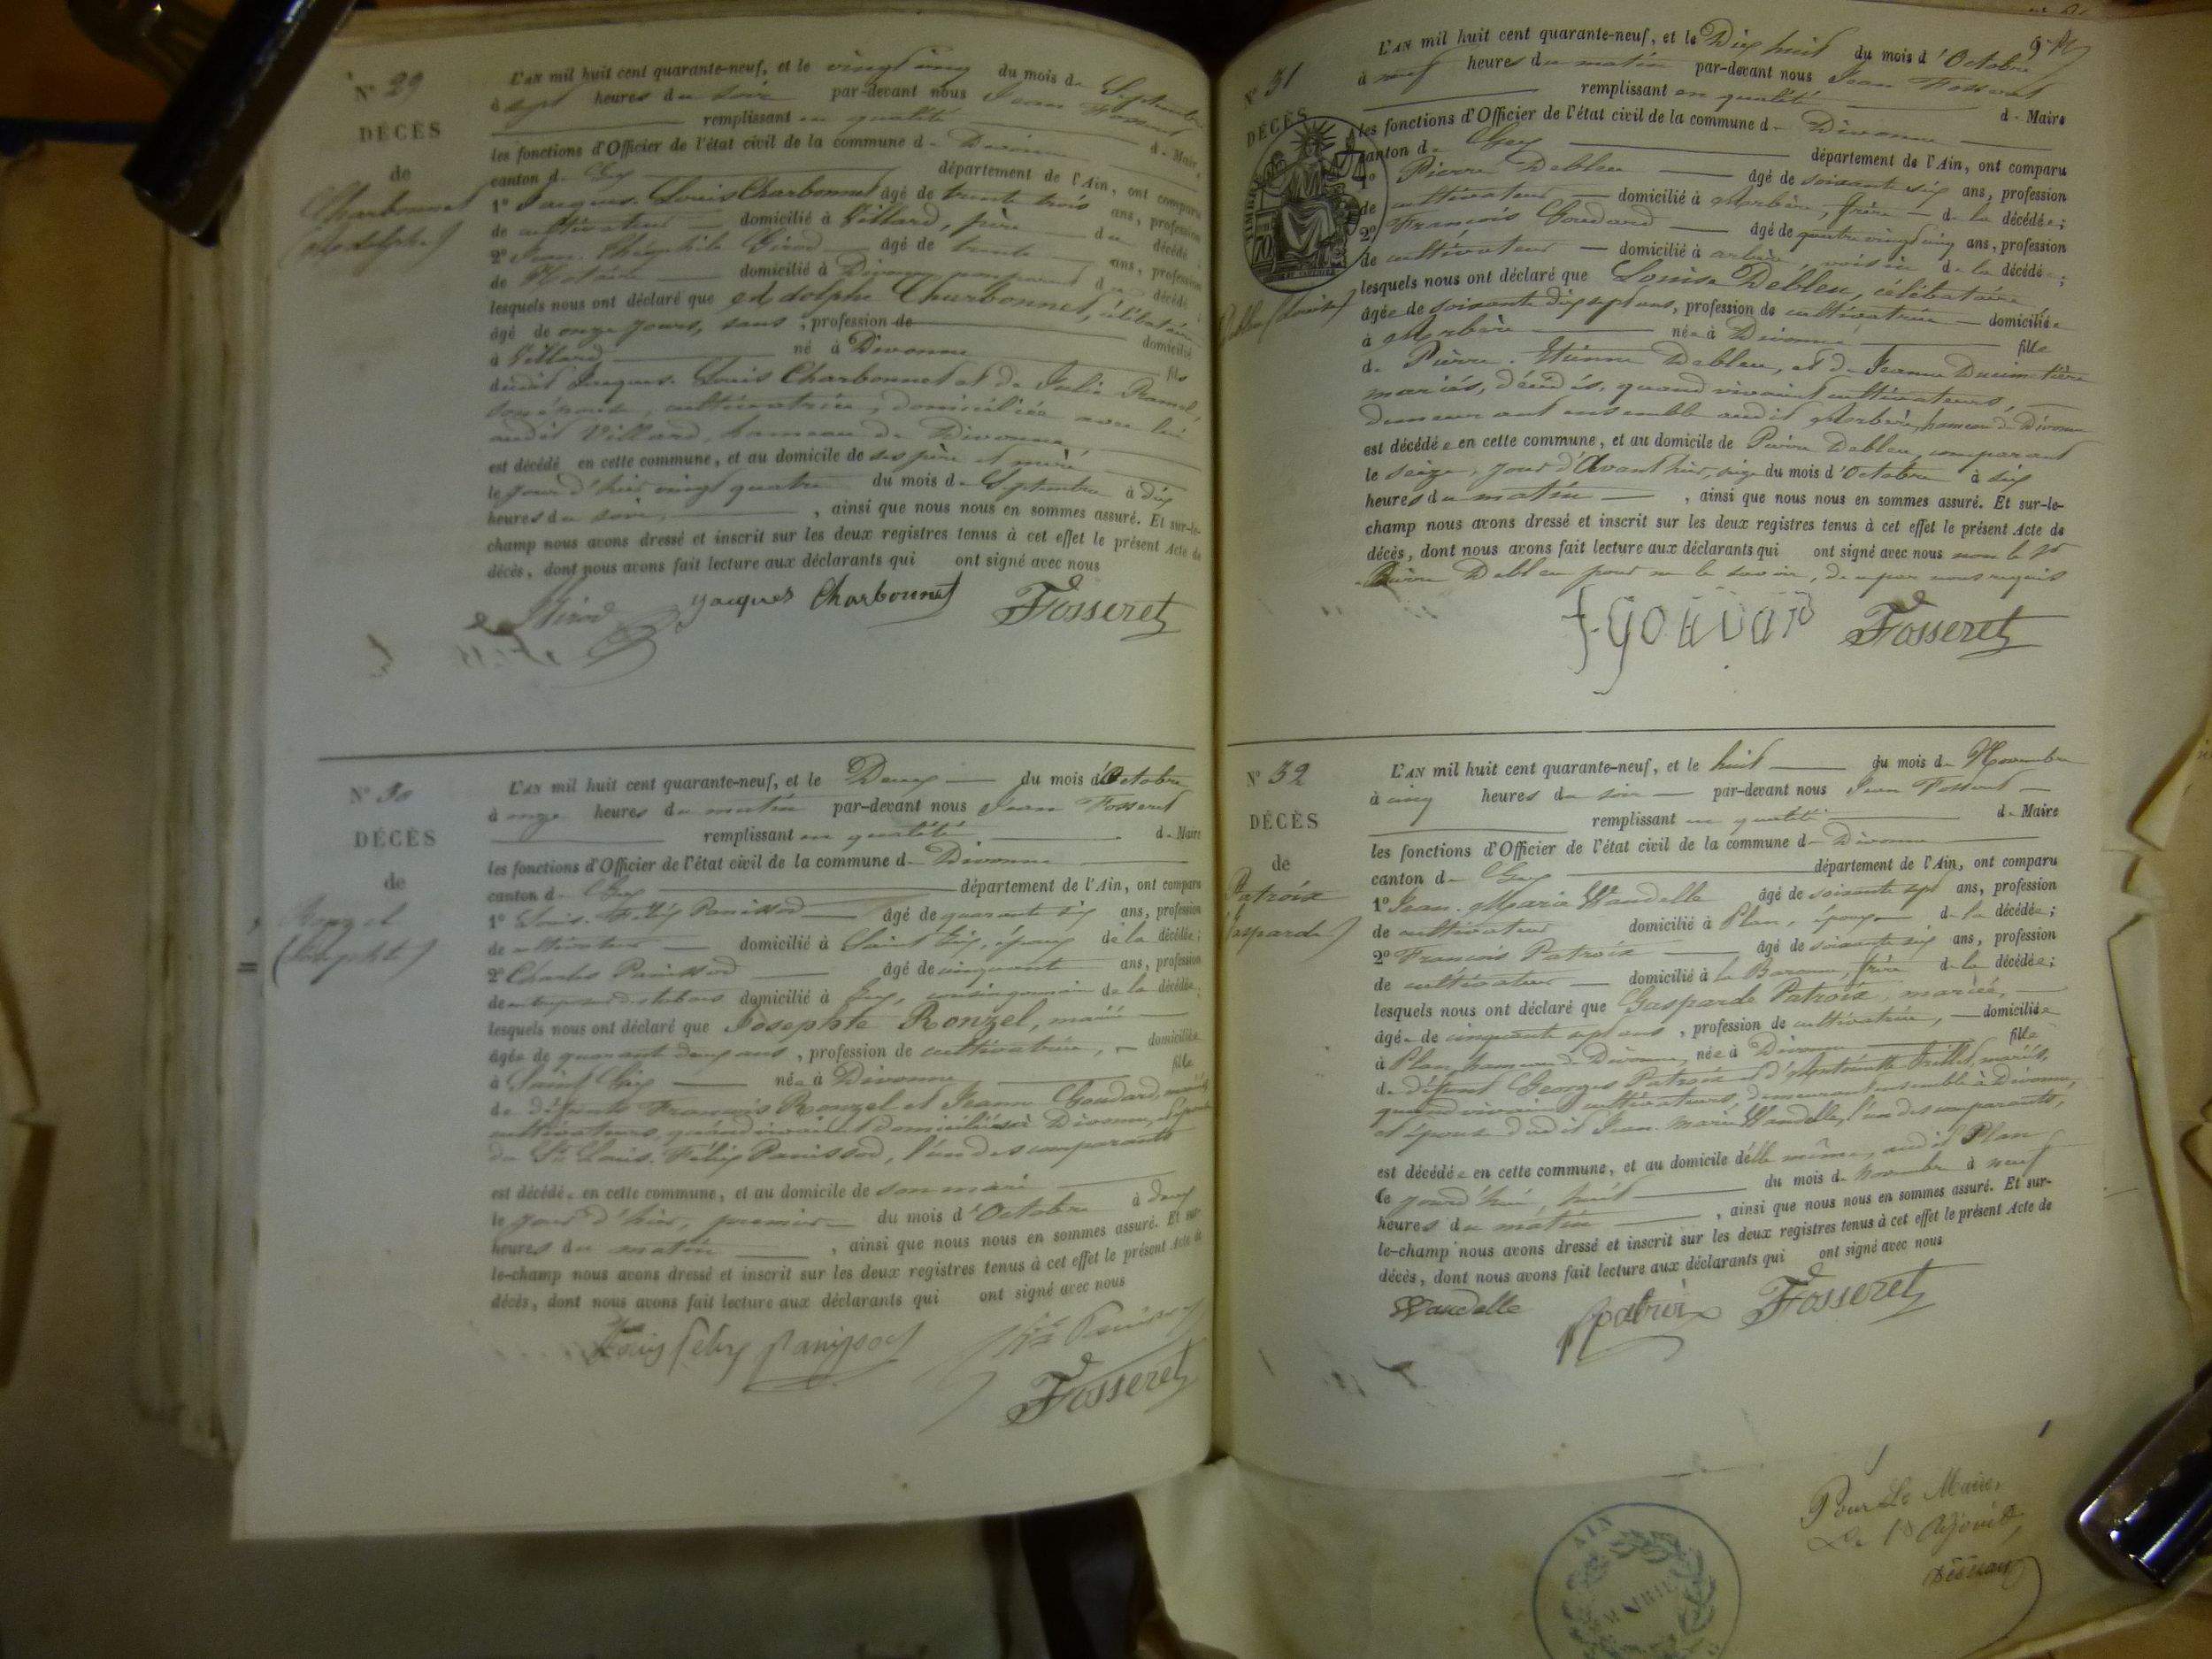 N° 29
DÉCÈS
de
Charbonnet
(Adolphe)
L'AN mil huit cent quarante-neuf, et le vingt cinq du mois de Septembre
à sept heures du soir par-devant nous Jean Fosseret
remplissant en qualité de Maire
les fonctions d'Officier de l'état civil de la commune de Divonne
canton de Gex département de l'Ain, ont comparu
1° Jacques Louis Charbonnet âgé de trente trois ans, profession
de cultivateur domicilié à Villard, père du décédé
2° Jean Théophile Girod âgé de trente ans, profession
de Notaire domicilié à Divonne, non parent du décédé
lesquels nous ont déclaré que Adolphe Charbonnet, célibataire
âgé de onze jours, sans, profession de domicilié
à Villard né à Divonne fils
dudit Jacques Louis Charbonnet et de Julie Ramel,
son épouse, cultivatrice, domiciliée avec lui
audit Villard, hameau de Divonne
est décédé en cette commune, et au domicile de ses père et mère
le jour d'hier vingt quatre du mois de Septembre à dix
heures du soir, ainsi que nous nous en sommes assuré. Et sur-le-
champ nous avons dressé et inscrit sur les deux registres tenus à cet effet le présent Acte de
décès, dont nous avons fait lecture aux déclarants qui ont signé avec nous
Girod Jacques Charbonnet Fosseret
N° 30
DÉCÈS
de
Ronzel
(Josephte)
L'AN mil huit cent quarante-neuf, et le Deux du mois d'Octobre
à onze heures du matin par-devant nous Jean Fosseret
remplissant en qualité de Maire
les fonctions d'Officier de l'état civil de la commune de Divonne
canton de Gex département de l'Ain, ont comparu
1° Louis Félix Panissod âgé de quarante six ans, profession
de cultivateur domicilié à Saint Gix, époux de la décédée;
2° Charles Panissod âgé de cinquante ans, profession
de entrepreneur de tabacs domicilié à Gex, cousin germain de la décédée,
lesquels nous ont déclaré que Josephte Ronzel, mariée
âgée de quarante deux ans, profession de cultivatrice, domiciliée
à Saint Gix née à Divonne fille
de défunts François Ronzel et Jeanne Goudard, mariés,
cultivateurs, quand vivaient domiciliés à Divonne, et épouse
du Sr. Louis Félix Panissod, l'un des comparants
est décédée en cette commune, et au domicile de son mari
le jour d'hier, premier du mois d'Octobre à deux
heures du matin, ainsi que nous nous en sommes assuré. Et sur-
le-champ nous avons dressé et inscrit sur les deux registres tenus à cet effet le présent Acte de
décès, dont nous avons fait lecture aux déclarants qui ont signé avec nous
Louis felix Panissod
Fosseret
N° 31
DÉCÈS
TIMBRE
70
Debleu (Louise)
L'AN mil huit cent quarante-neuf, et le Dix huit du mois d'Octobre
à neuf heures du matin par-devant nous Jean Fosseret
remplissant en qualité de Maire
les fonctions d'Officier de l'état civil de la commune de Divonne
canton de Gex département de l'Ain, ont comparu
1° Pierre Debleu âgé de soixante six ans, profession
de cultivateur domicilié à Arbère, frère de la décédée;
2° François Goudard âgé de quatre vingt cinq ans, profession
de cultivateur domicilié à arbère, voisin de la décédée;
lesquels nous ont déclaré que Louise Debleu, célibataire
âgée de soixante dix sept ans, profession de cultivatrice domiciliée
à Arbère née à Divonne fille
de Pierre Etienne Debleu, et de Jeanne Ducimetière
mariés, décédés, quand vivaient cultivateurs,
demeurant ensemble audit Arbère, hameau de Divonne
est décédée en cette commune, et au domicile de Pierre Debleu, comparant
le seize, jour d'Avant hier, seize du mois d'Octobre à six
heures du matin, ainsi que nous nous en sommes assuré. Et sur-le-
champ nous avons dressé et inscrit sur les deux registres tenus à cet effet le présent Acte de
décès, dont nous avons fait lecture aux déclarants qui ont signé avec nous non le Sr.
Pierre Debleu pour ne le savoir, de ce par nous requis
f. goudard Fosseret
N° 32
DÉCÈS
de
Patroix
Gasparde)
L'AN mil huit cent quarante-neuf, et le huit du mois de Novembre
à cinq heures du soir par-devant nous Jean Fosseret
remplissant en qualité de Maire
les fonctions d'Officier de l'état civil de la commune de Divonne
canton de Gex département de l'Ain, ont comparu
1° Jean Marie Vandelle âgé de soixante sept ans, profession
de cultivateur domicilié à Plan, époux de la décédée;
2° François Patroix âgé de soixante six ans, profession
de cultivateur domicilié à la Baronne, frère de la décédée;
lesquels nous ont déclaré que Gasparde Patroix, mariée,
âgée de cinquante sept ans, profession de cultivatrice, domiciliée
à Plan, hameau de Divonne, née à Divonne fille
de défunt Georges Patroix et d'Antoinette Grillet, mariés,
quand vivaient cultivateurs, demeurant ensemble à Divonne,
et épouse dudit Jean Marie Vandelle, l'un des comparants,
est décédée en cette commune, et au domicile d'elle même, audit Plan
Ce jourd'hui, huit du mois de Novembre à neuf
heures du matin, ainsi que nous nous en sommes assuré. Et sur-
le-champ nous avons dressé et inscrit sur les deux registres tenus à cet effet le présent Acte de
décès, dont nous avons fait lecture aux déclarants qui ont signé avec nous
Vandelle Patroix Fosseret
Pour Le Maire,
L'Adjoint
AIN
MAIRIE